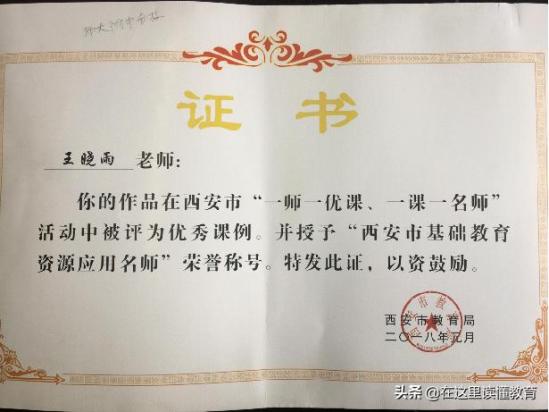 证书
王晓雨 老师:
你的作品在西安市“一师一优课、一课一名师”
活动中被评为优秀课例。并授予“西安市基础教育
资源应用名师”荣誉称号。特发此证,以资鼓励。
西安市教育局
二〇一八年元月
头条 @在这里读懂教育